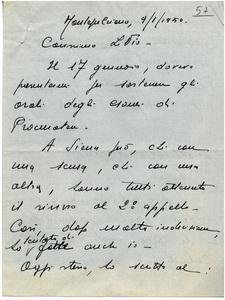 57
Montepulciano, 9/1/1950.
Carissimo Zio -
Il 17 gennaio, dovrei
presentarmi per sostenere gli
orali degli esami di
Procuratore.
A Siena però, chi con
una scusa, chi con una
altra, hanno tutti ottenuto
il rinvio al 2° appello.
Così, dopo molta indecisione,
lo anch'io -
Oggi stesso, ho scritto al